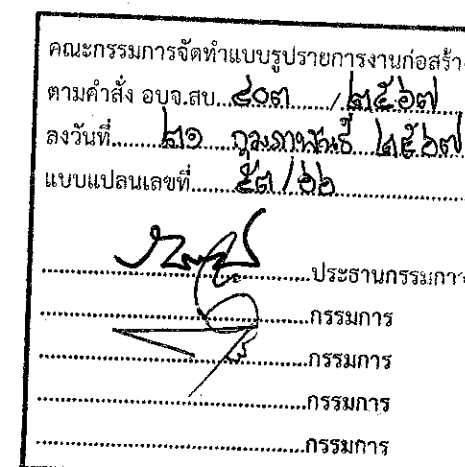 คณะกรรมการจัดทำแบบรูปรายการงานก่อสร้าง
ตามคำสั่ง อบจ.สบ...๔๐๓...../.๒๕๖๗
ลงวันที่.........๒๑ กุมภาพันธ์ ๒๕๖๗
แบบแปลนเลขที่.......๕๓/๖๖
ประธานกรรมการ
กรรมการ
กรรมการ
กรรมการ
กรรมการ